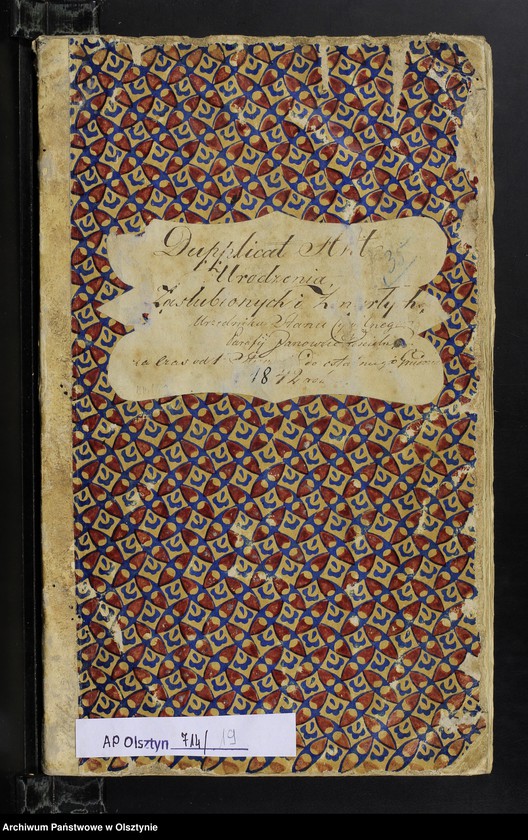 Dupplicat Akt
35
Urodzenia,
Zaslubionych i Zmarłych
Urzędnika Stanu Cywilnego
Parafij Janowiec
na czas od 1 do ostatniego
1842 ro
AP Olsztyn 714/19
Archiwum Państwowe w Olsztynie